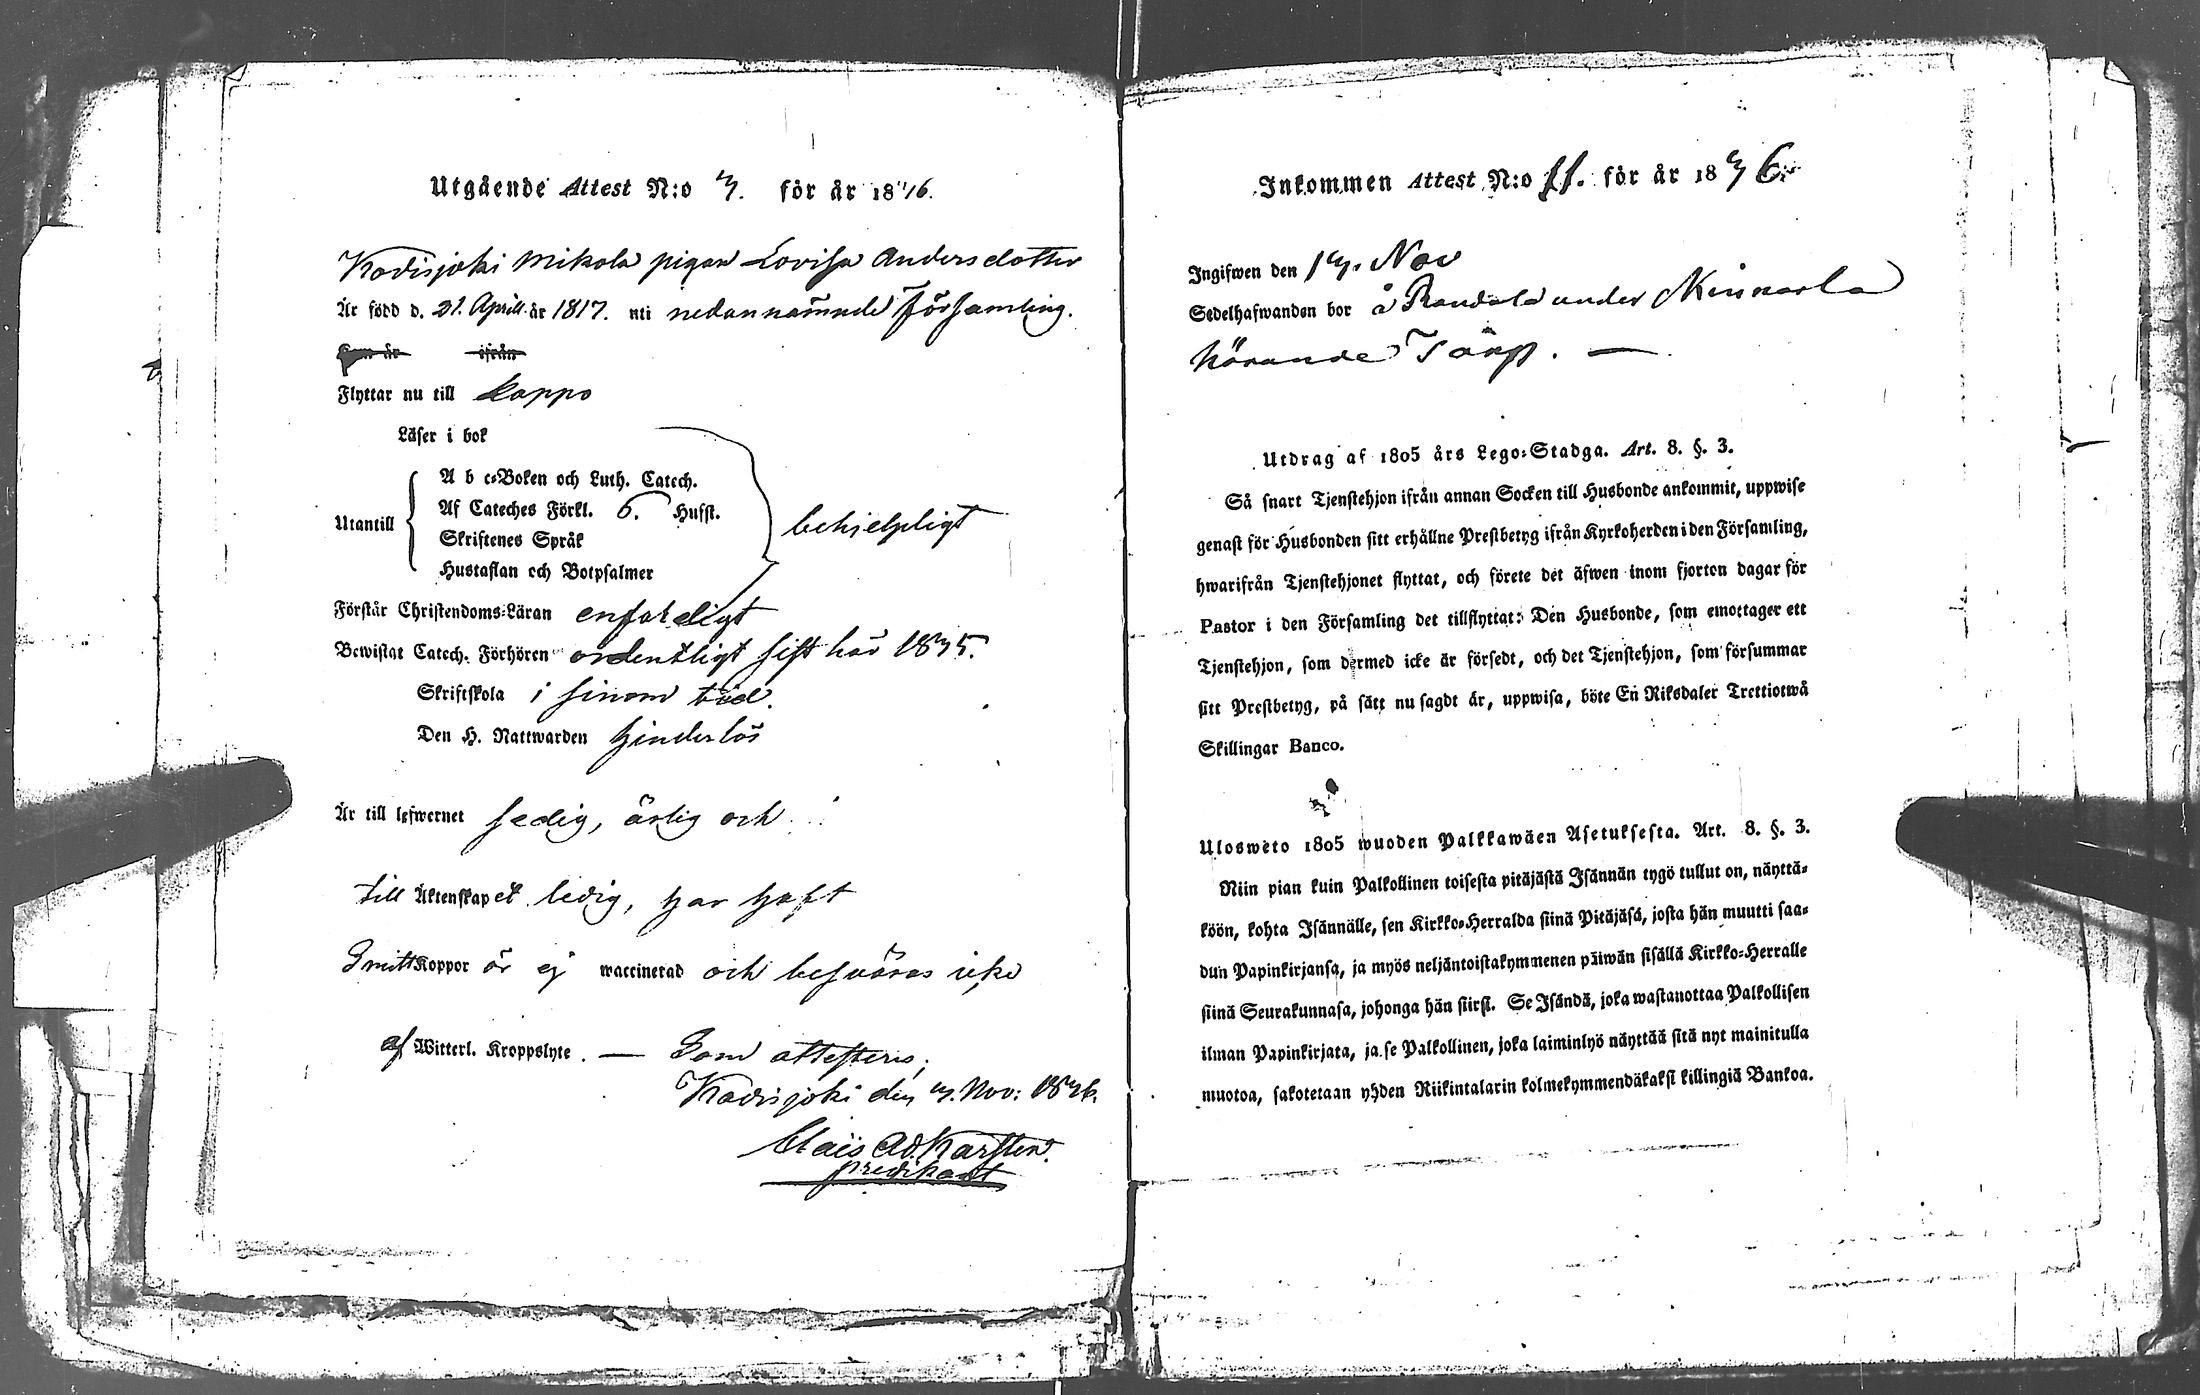 Utgående Attest N:o 4. för år 1846.
Kodisjoki Mikola pigan Lovisa Andersdotter
Är född d. 21. April år 1817. uti nedannämnde Församling.
Som är ifrån
Flyttar nu till Lappo
Läser i bok
Utantill
A b c=Boken och Luth. Catech.
Af Cateches Förkl. 6. Hufst.
Skriftenes Språk
Hustaflan och Botpsalmer
behjelpligt
Förstår Christendoms=Läran enfaldigt
Bewistat Catech. Förhören ordentligt sist här 1845.
Skriftskola i sinom tid.
Den H. Nattwarden hinderlös
Är till lefwernet sedig, ärlig och
till Äktenskapet ledig, har haft
Smittkoppor är ej waccinerad och besväras icke
af Witterl. Kroppslyte. — Som attesteras;
Kodisjoki den 4. Nov: 1846.
Claës Ad. Karsten.
predikant
Inkommen Attest N:o 11. för år 1846.
Ingifwen den 14. Nov
Sedelhafwanden bor å Randala under Kinnarla
hörande Torp. —
Utdrag af 1805 års Lego=Stadga. Art. 8. §. 3.
Så snart Tjenstehjon ifrån annan Socken till Husbonde ankommit, uppwise
genast för Husbonden sitt erhållne Prestbetyg ifrån Kyrkoherden i den Församling,
hwarifrån Tjenstehjonet flyttat, och förete det äfwen inom fjorton dagar för
Pastor i den Församling det tillflyttat: Den Husbonde, som emottager ett
Tjenstehjon, som dermed icke är försedt, och det Tjenstehjon, som försummar
sitt Prestbetyg, på sätt nu sagdt är, uppwisa, böte En Riksdaler Trettiotwå
Skillingar Banco.
Ulosweto 1805 wuoden Palkkawäen Asetuksesta. Art. 8. §. 3.
Niin pian kuin Palkollinen toisesta pitäjästä Isännän tygö tullut on, näyttä=
köön, kohta Isännälle, sen Kirkko=Herralda siinä Pitäjäsä, josta hän muutti saa=
dun Papinkirjansa, ja myös neljäntoistakymmenen päiwän sisällä Kirkko=Herralle
siinä Seurakunnasa, johonga hän siirsi. Se Isändä, joka wastanottaa Palkollisen
ilman Papinkirjata, ja se Palkollinen, joka laiminlyö näyttää sitä nyt mainitulla
muotoa, sakotetaan yhden Riikintalarin kolmekymmendäkaksi killingiä Bankoa.